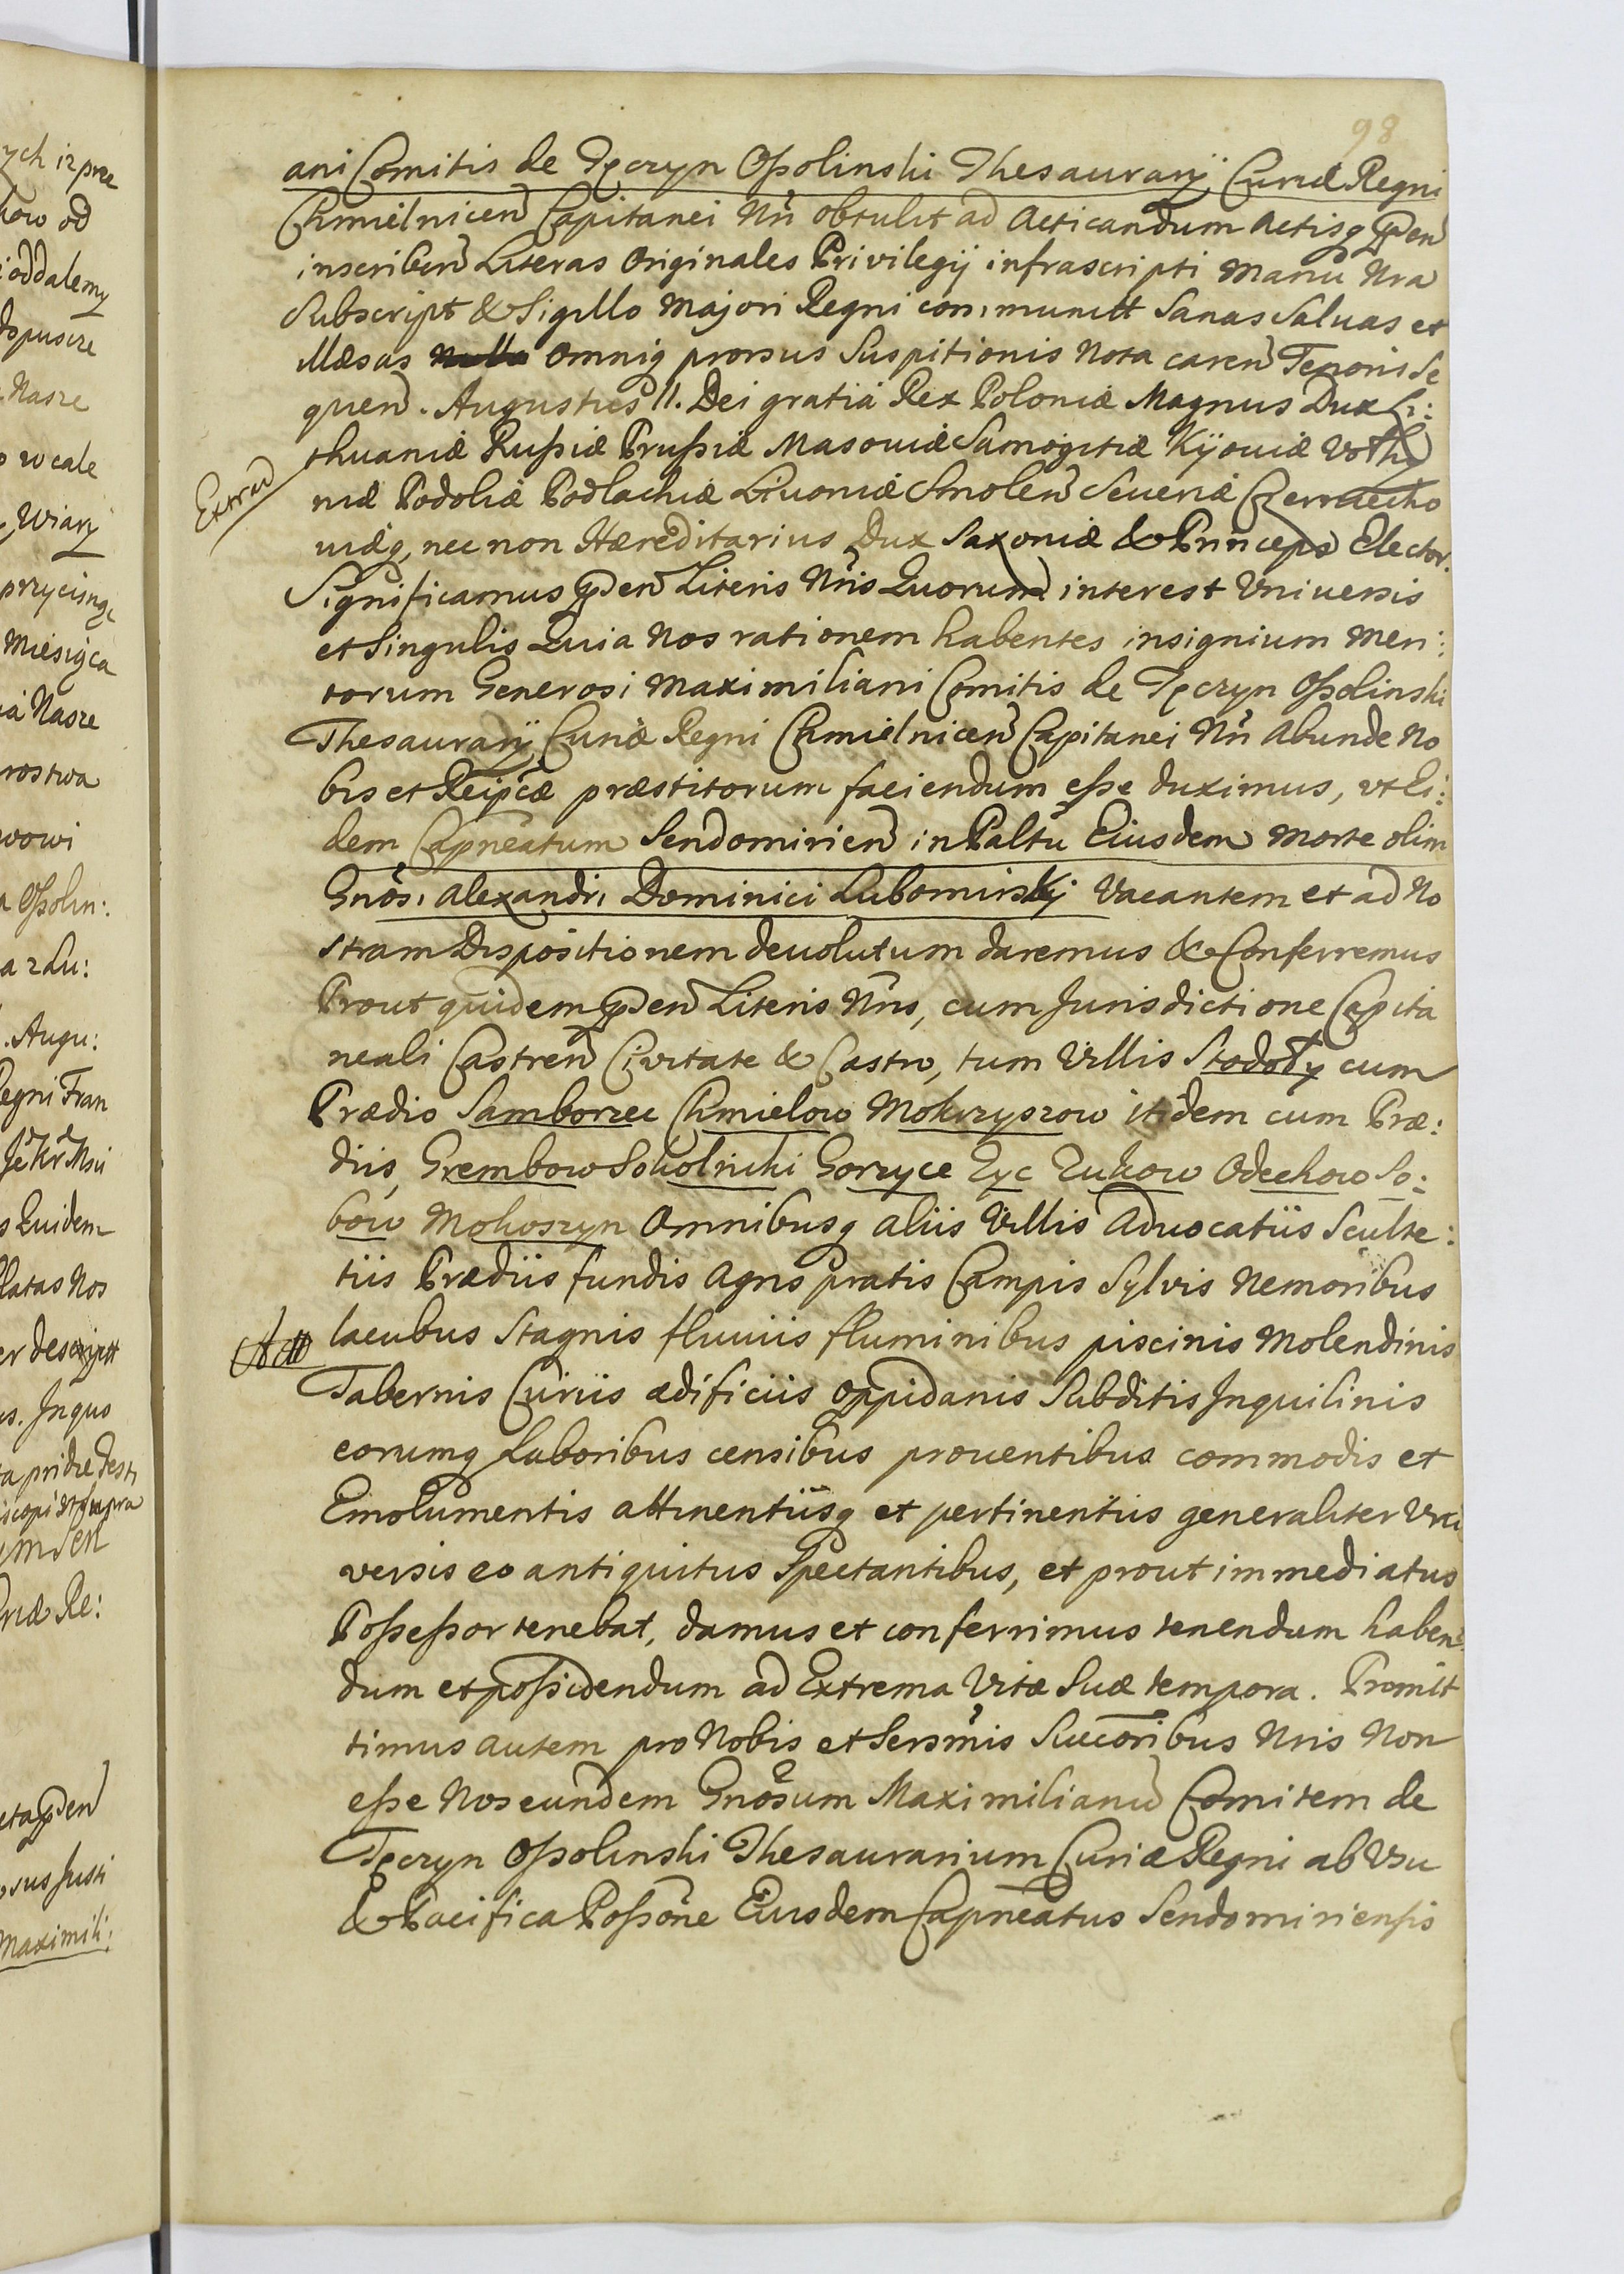 98
ani Comitis de Tęczyn Ossolinski Thesaurarÿ Curiæ Regni
Chmielnicen Capitanei Nri obtulit ad acticandum actisq pnen
inscriben Literas Originales Privilegÿ infrascripti manu Nra
Subscript & Sigillo Majori Regni communitt Sanas Saluas et
illæsas omniq prorsus Suspitionis Nota caren Tenoris Se
quen. Augustus II. Dei gratiâ Rex Poloniæ Magnus Dux Li:
thuaniæ Russiæ Prussiæ Masouiæ Samogitiæ Kÿouiæ Volhy
Extrad
niæ Podoliæ Podlachiæ Liuoniæ Smolen Seueriæ Czerniecho
uiæq, nec non Hæreditarius Dux Saxoniæ & Princeps Elector.
Significamus pnen Literis Nris Quorum interest Vniuersis
et Singulis Quia Nos rationem habentes insignium Meri:
torum Generosi Maximiliani Comitis de Tęczyn Ossolinski
Thesaurarÿ Curiæ Regni Chmielnicen Capitanei Nri Abunde No
bis et Reipcæ præstitorum faciendum esse duximus, vt Ei:
dem Capneatum Sendomirien in Paltu Eiusdem morte olim
Gnosi Alexandri Dominici Lubomirskÿ Vacantem et ad No
stram Dispositionem deuolutum daremus & Conferremus
Prout quidem pnen Literis Nris, cum Jurisdictione Capita
neali Castren Civitate & Castro, tum Villis Stodoły cum
Prædio Samborzec Chmielow Mokrzyszow itidem cum Præ:
diis, Grembow Sokolniki Gorzyce Życ Żukow Odechow So:
bow Mokoszyn Omnibusq aliis Villis Aduocatiis Sculte:
tiis Prædiis fundis Agris pratis Campis Sylvis Nemoribus
lacubus Stagnis fluuiis fluminibus piscinis Molendinis
Tabernis Curiis ædificiis Oppidanis Subditis Inquilinis
eorumq Laboribus censibus prouentibus commodis et
Emolumentis attinentiisq et pertinentiis generaliter Vni
versis eo antiquitus Spectantibus, et prout immediatus
Possessor tenebat, damus et conferrimus tenendum haben:
dum et possidendum ad Extrema Vitæ Suæ tempora. Promit
timus autem pro Nobis et Sersmis Succoribus Nris Non
esse Nos eundem Gnosum Maximilianu Comitem de
Tęczyn Ossolinski Thesaurarium Curiæ Regni ab Vsu
& Pacifica Possone Eiusdem Capneatus Sendomiriensis